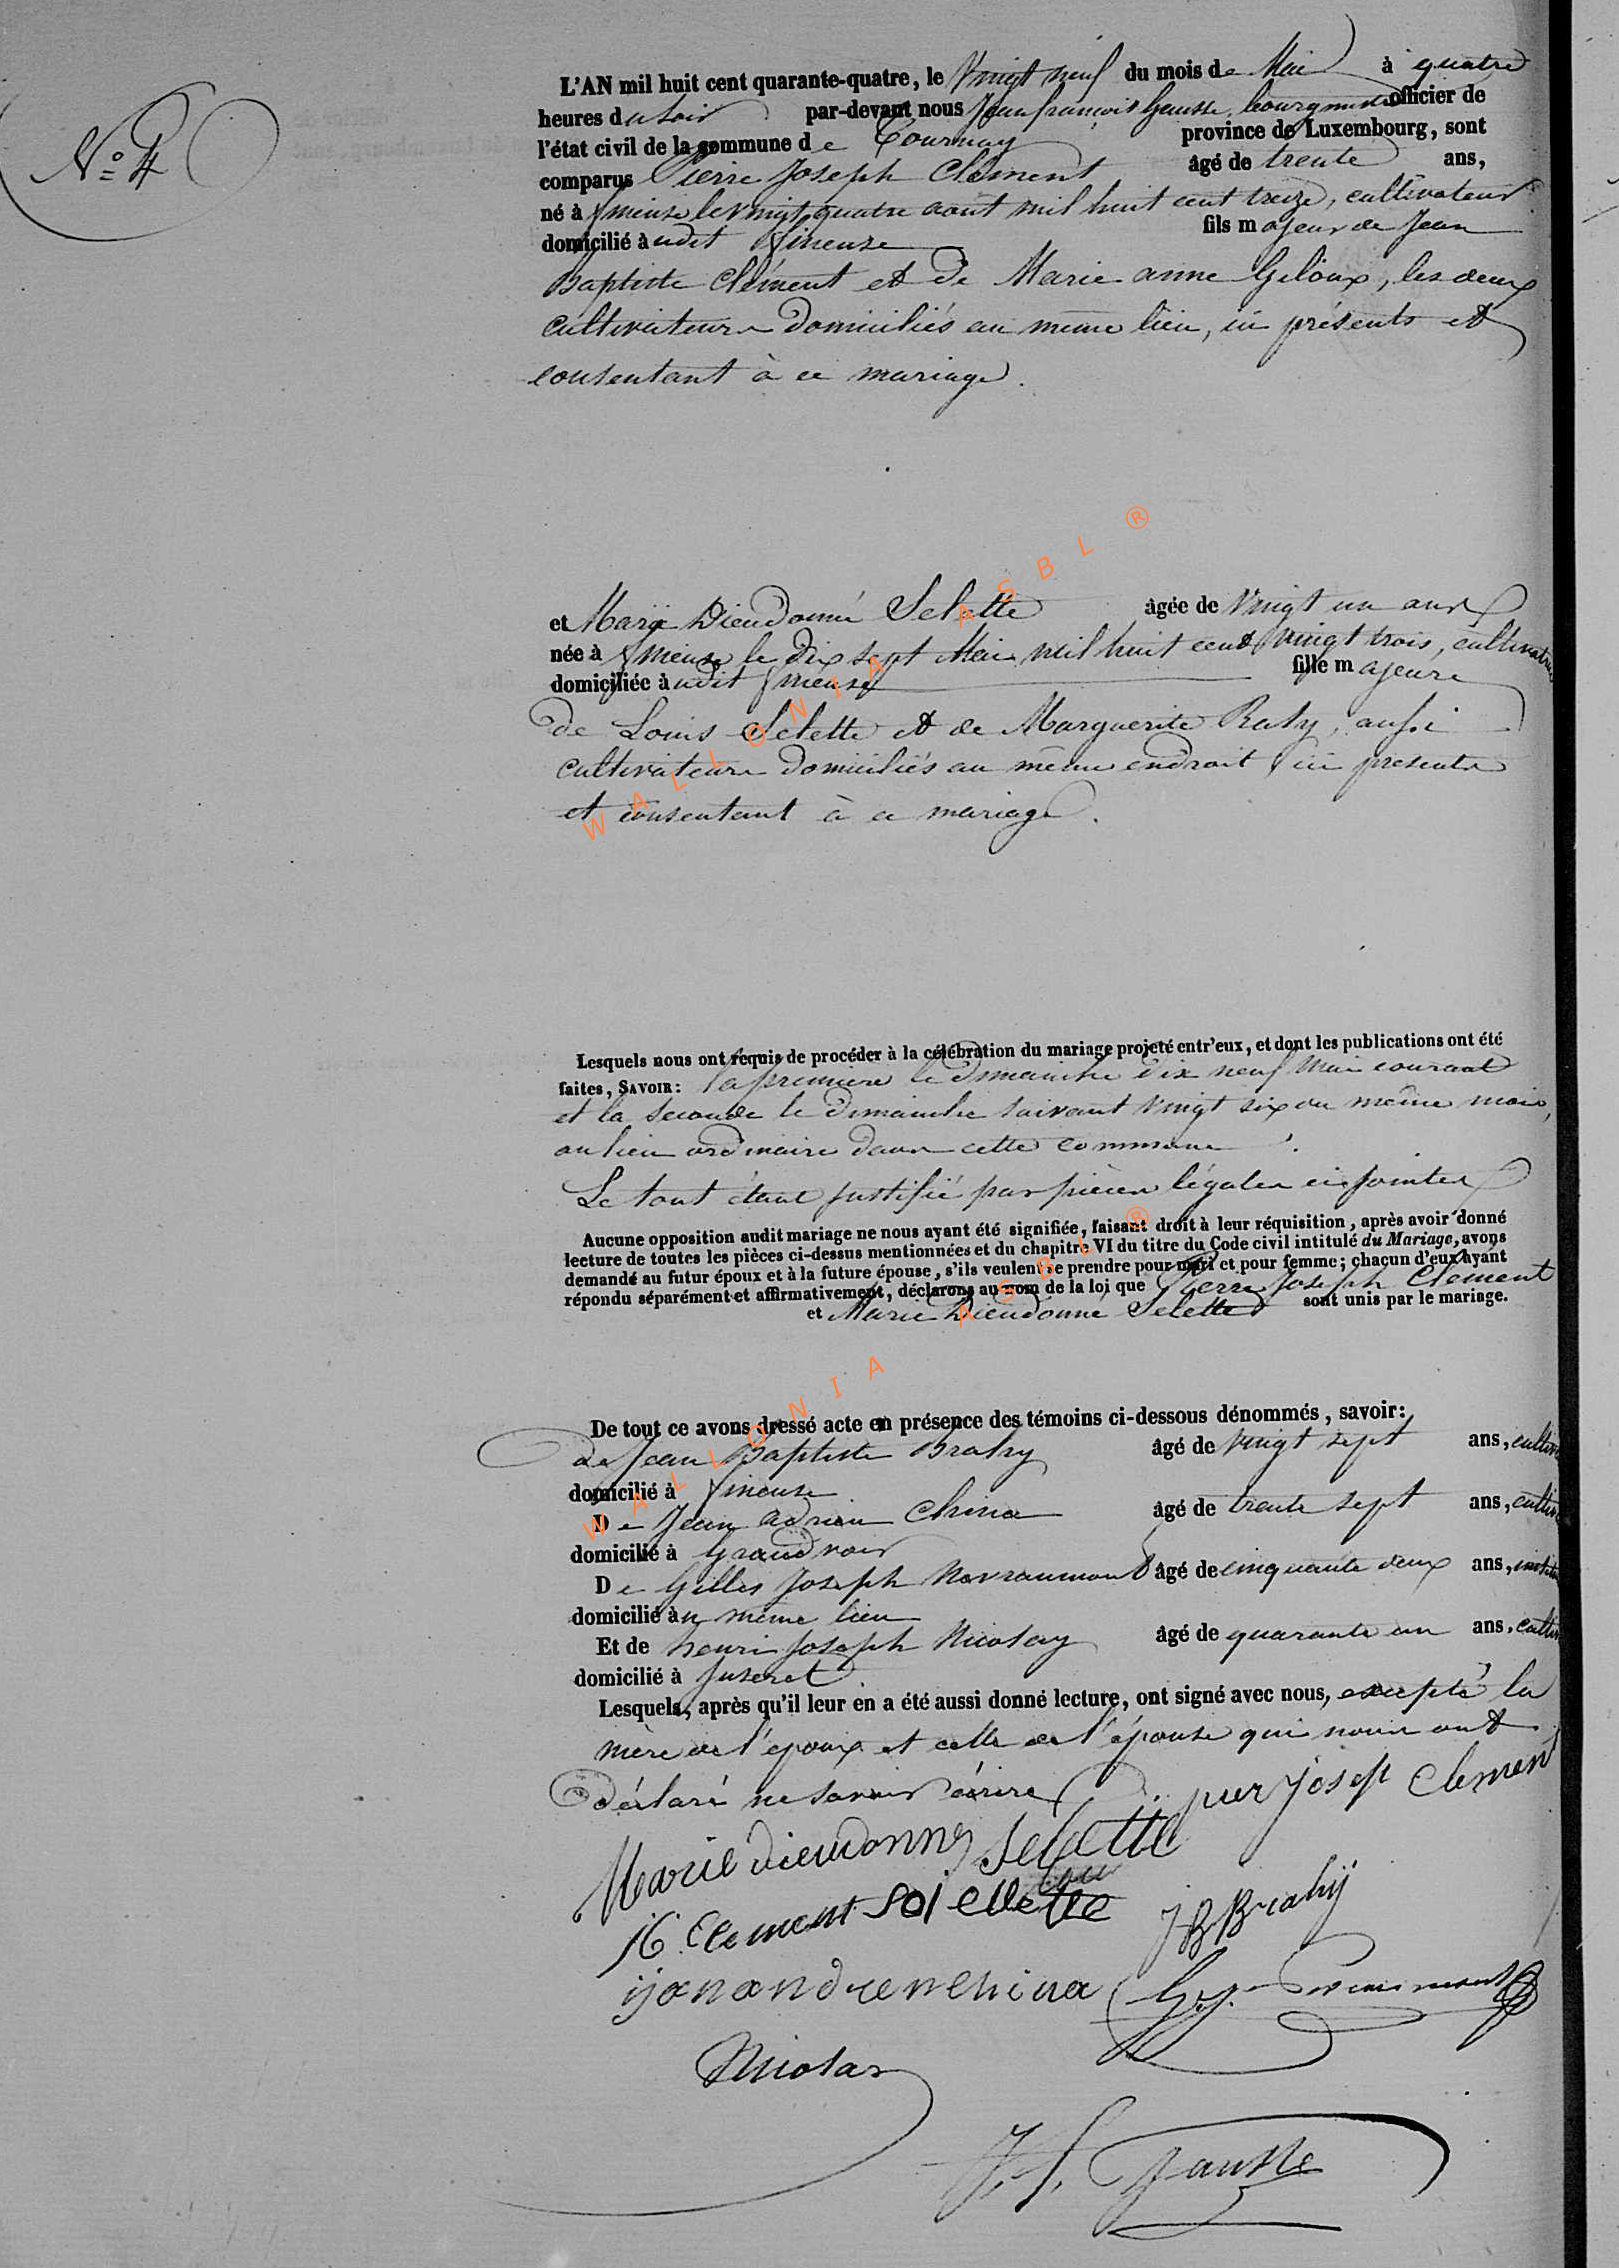 N° 4
L'AN mil huit cent quarante-quatre, le Vingt neuf du mois de Mai à quatre
heures du soir par-devant nous Jean françois Gausse, bourgmestre officier de
l'état civil de la commune de Tournay province de Luxembourg, sont
comparus Pierre Joseph Clément âgé de trente ans,
né à fineuse le vingt quatre aout mil huit cent treize, cultivateur
domicilié audit fineuse fils majeur de Jean
Baptiste Clément et de Marie anne Giloux, les deux
cultivateurs domiciliés au même lieu, ici présents et
consentant à ce mariage.
et Marie Dieudonné Selette âgée de Vingt un ans
née à fineuse le dix sept Mai mil huit cent vingt trois, cultivatrice
domiciliée audit fineuse fille majeure
de Louis Selette et de Marguerite Raty, aussi
cultivateurs domiciliés au même endroit ici présents
et consentant à ce mariage.
Lesquels nous ont requis de procéder à la célébration du mariage projeté entr'eux, et dont les publications ont été
faites, SAVOIR: la première le dimanche dix neuf Mai courant
et la seconde le dimanche suivant vingt six du même mois,
au lieu ordinaire dans cette commune.
Le tout étant justifié par pièces légales ci jointes
Aucune opposition audit mariage ne nous ayant été signifiée, faisant droit à leur réquisition, après avoir donné
lecture de toutes les pièces ci-dessus mentionnées et du chapitre VI du titre du Code civil intitulé du Mariage, avons
demandé au futur époux et à la future épouse, s'ils veulent se prendre pour mari et pour femme; chacun d'eux ayant
répondu séparément et affirmativement, déclarons au nom de la loi que Pierre Joseph Clément
et Marie Dieudonné Selette sont unis par le mariage.
De tout ce avons dressé acte en présence des témoins ci-dessous dénommés, savoir:
De Jean Baptiste Brahy âgé de vingt sept ans, cultiv
domicilié à fineuse
De Jean Adrien China âgé de trente sept ans, cultiv
domicilié à Grandvoir
De Gilles Joseph Navraumont âgé de cinquante deux ans, instit
domicilié au même lieu
Et de henri Joseph Nicolay âgé de quarante un ans, cultiv
domicilié à Juseret.
Lesquels, après qu'il leur en a été aussi donné lecture, ont signé avec nous, excepté la
mère de l'époux et celle de l'épouse qui nous ont
déclaré ne savoir écrire. pier Josept Clement
Marie dieudonné Selette
Clement Sol ellette JB Brahÿ
G. J.
Nicolas
J. f. Gausse
WALLONIA ASBL ®
WALLONIA ASBL ®